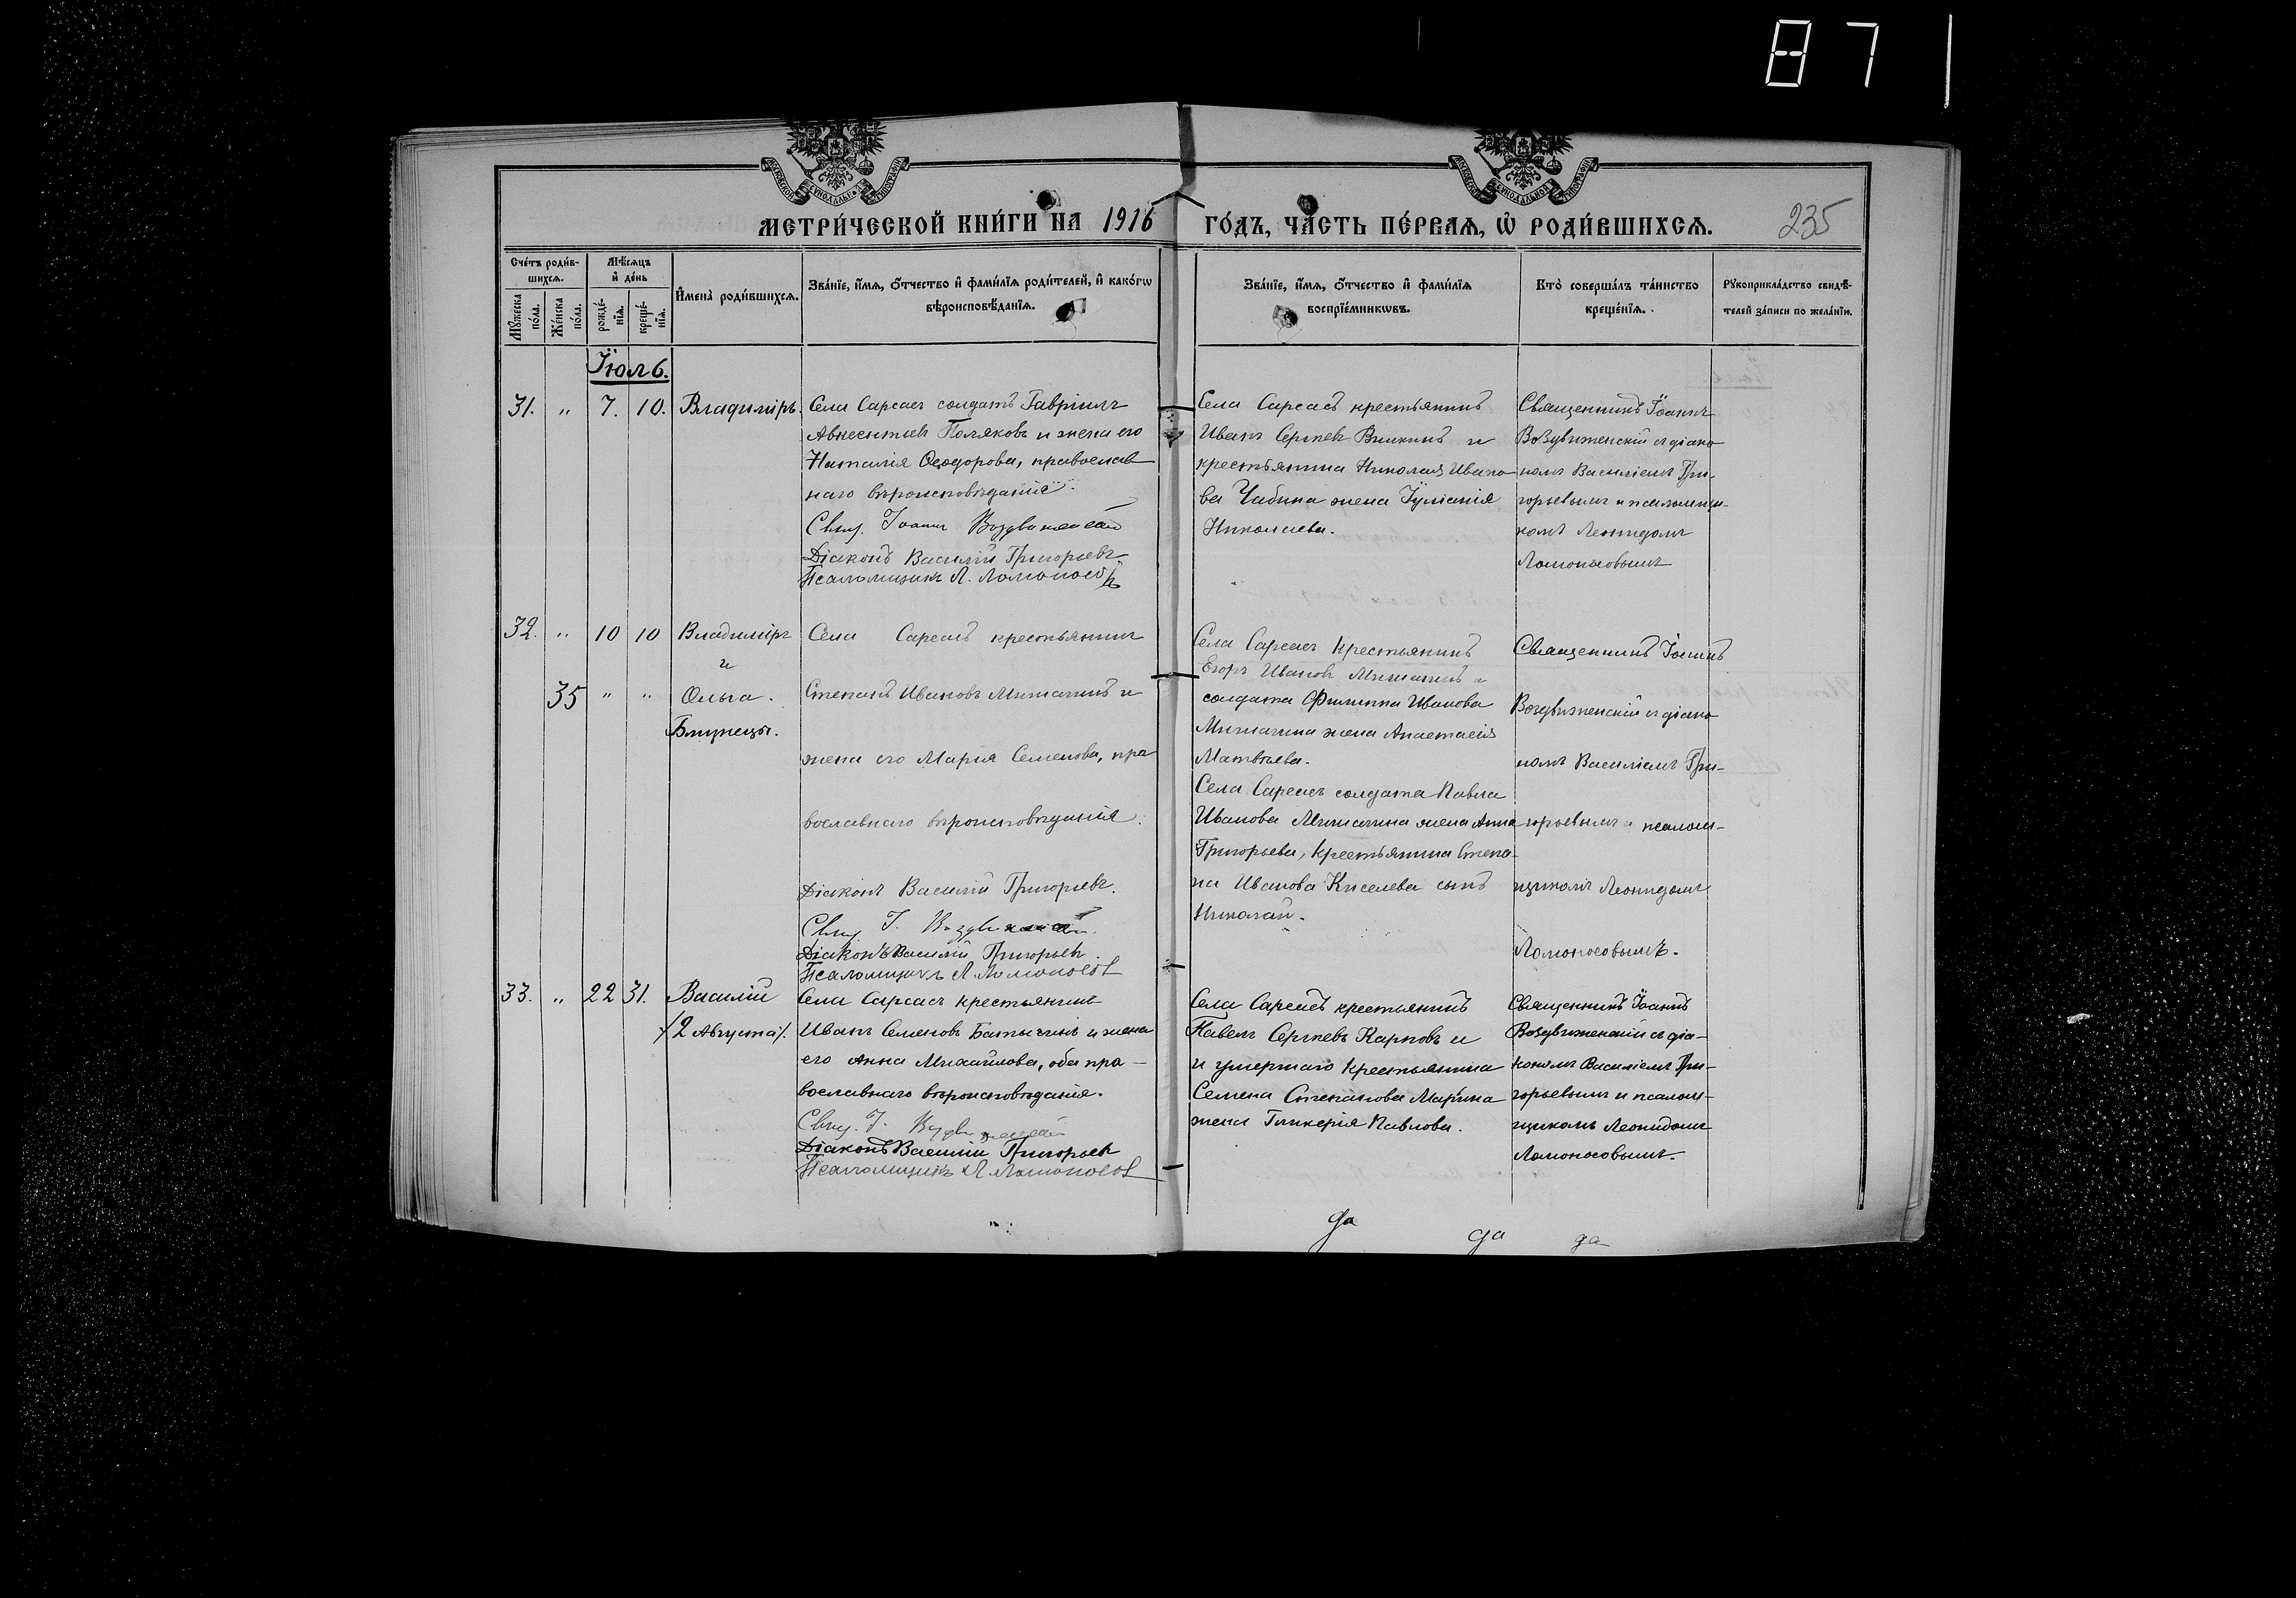 87
МЕТРИ́ЧЕСКОЙ КНИ́ГИ НА 1916 ГО́ДЪ, ЧА́СТЬ ПЕ́РВАЯ, Ѡ РОДИ́ВШИХСЯ.
235
Сче́тъ роди́в-
шихся.
Мꙋ́жеска
по́ла.
Же́нска
по́ла.
Мѣ́сяцъ
и҆ де́нь
рожде́-
нїя.
креще́-
нїя.
И҆мена̀ роди́вшихся.
Зва́нїе, и҆́мя, ѻ҆́тчество и҆ фами́лїя роди́телей, и҆ како́гѡ
вѣроисповѣ́данїя.
Зва́нїе, и҆́мя, ѻ҆́тчество и҆ фами́лїя
воспрїе́мникѡвъ.
Кто̀ соверша́лъ та́инство
креще́нїя.
Рꙋкоприкла́дство свидѣ́-
телей за́писи по жела́нїю.
Іюль.
31. „ 7. 10. Владиміръ.
Села Сарсасъ солдатъ Гавріилъ
Авксентьевъ Поляковъ и жена его
Наталія Ѳеодорова, православ
наго вѣроисповѣданія.
Свящ. Іоаннъ Воздвиженскій
Діаконъ Василій Григорьевъ
Псаломщикъ Л. Ломоносовъ
Села Сарсасъ крестьянинъ
Иванъ Сергѣевъ и
крестьянина Николая Ивано
ва Чабина жена Іуліанія
Николаева.
Священникъ Іоаннъ
Воздвиженскій съ діако
номъ Василіемъ Гри-
горьевымъ и псаломщи-
комъ Леонидомъ
Ломоносовымъ
32. „ 10 10 Владиміръ
и
35 „ „ Ольга.
Близнецы.
Села Сарсасъ крестьянинъ
Степанъ Ивановъ Мишагинъ и
жена его Марія Семенова, пра
вославнаго вѣроисповѣданія.
Діаконъ Василій Григорьевъ.
Свящ. І. Воздвиженскій
Діаконъ Василій Григорьевъ.
Псаломщикъ Л Ломоносовъ
Села Сарсасъ крестьянинъ
Егоръ Ивановъ Мишагинъ и
солдата Филиппа Иванова
Мишагина жена Анастасія
Матвѣева.
Села Сарсасъ солдата Павла
Иванова Мишагина жена Анна
Григорьева, крестьянина Степа-
на Иванова Киселева сынъ
Николай.
Священникъ Іоаннъ
Воздвиженскій съ діако
номъ Василіемъ Гри-
горьевымъ и псалом-
щикомъ Леонидомъ
Ломоносовымъ.
33. „ 22 31. Василій
/2 Августа/.
Села Сарсасъ крестьянинъ
Иванъ Семеновъ Батыгинъ и жена
его Анна Михайлова, оба пра-
вославнаго вѣроисповѣданія.
Свящ. І. Воздвиженскій
Діаконъ Василій Григорьевъ
Псаломщикъ Л Ломоносовъ
Села Сарсасъ крестьянинъ
Павелъ Сергѣевъ Карповъ и
и умершаго крестьянина
Семена Степанова Марина
жена Гликерія Павлова.
Священникъ Іоаннъ
Воздвиженскій съ діа-
кономъ Василіемъ Гри-
горьевымъ и псалом-
щикомъ Леонидомъ
Ломоносовымъ.
да да да